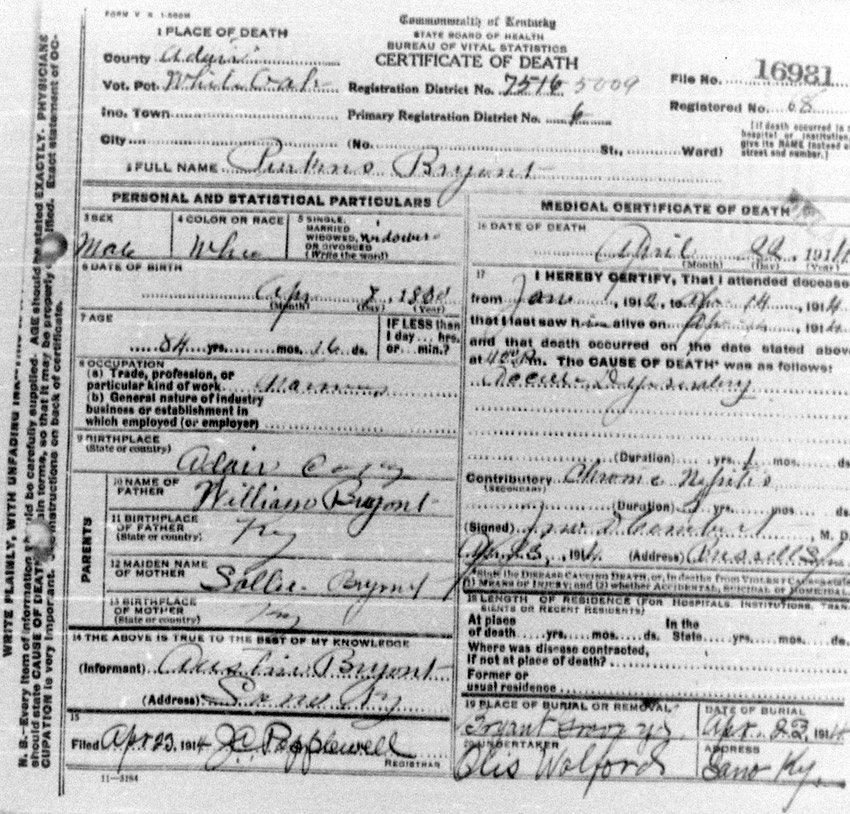 FORM V. S. 1-500M
Commonwealth of Kentucky
STATE BOARD OF HEALTH
BUREAU OF VITAL STATISTICS
CERTIFICATE OF DEATH
1 PLACE OF DEATH
County Adair
Vot. Pct. White Oak
Ino. Town
City
Registration District No. 7516 5009
Primary Registration District No. 6
(No. St., Ward)
File No. 16981
Registered No. 68
(If death occurred in a
hospital or institution,
give its NAME instead of
street and number.)
2 FULL NAME Perkins Bryant
PERSONAL AND STATISTICAL PARTICULARS
3 SEX
Male
4 COLOR OR RACE
White
5 SINGLE,
MARRIED
WIDOWED, widower
OR DIVORCED
(Write the word)
6 DATE OF BIRTH
Apr 7, 18
(Month) (Day) (Year)
7 AGE
84 yrs. mos. 16 ds.
IF LESS than
1 day... hrs.
or... min.?
8 OCCUPATION
(a) Trade, profession, or
particular kind of work
(b) General nature of industry
business or establishment in
which employed (or employer)
9 BIRTHPLACE
(State or country)
Adair Co Ky
PARENTS
10 NAME OF
FATHER
William Bryant
11 BIRTHPLACE
OF FATHER
(State or country)
Ky
12 MAIDEN NAME
OF MOTHER
Sallie Bryant
13 BIRTHPLACE
OF MOTHER
(State or country)
Ky
14 THE ABOVE IS TRUE TO THE BEST OF MY KNOWLEDGE
(Informant) Austin Bryant
(Address) Sano Ky
15
Filed Apr 23, 1914 J.C. Popplewell
REGISTRAR
11—3184
MEDICAL CERTIFICATE OF DEATH
16 DATE OF DEATH
April 22, 1914
(Month) (Day) (Year)
17 I HEREBY CERTIFY, That I attended deceased
from Jan, 1912, to Apr 14, 1914
that I last saw him alive on, 1914
and that death occurred on the date stated above
at m. The CAUSE OF DEATH* was as follows:
Dysentery
(Duration) yrs. 1 mos. ds.
Contributory Chronic Nefritis
(SECONDARY)
(Duration) yrs. mos. ds.
(Signed) M. D.
Apr 23, 1914 (Address) Russell Spr
*State the DISEASE CAUSING DEATH, or, in deaths from VIOLENT CAUSES, state
(1) MEANS OF INJURY; and (2) whether ACCIDENTAL, SUICIDAL or HOMICIDAL
18 LENGTH OF RESIDENCE (FOR HOSPITALS, INSTITUTIONS, TRAN-
SIENTS OR RECENT RESIDENTS)
At place
of death yrs. mos. ds.
In the
State yrs. mos. ds.
Where was disease contracted,
if not at place of death?
Former or
usual residence
19 PLACE OF BURIAL OR REMOVAL
Bryant grave yd.
DATE OF BURIAL
Apr. 23, 1914
20 UNDERTAKER
Otis Wolford
ADDRESS
Sano Ky.
N. B.—Every item of information should be carefully supplied. AGE should be stated EXACTLY. PHYSICIANS
should state CAUSE OF DEATH in plain terms, so that it may be properly classified. Exact statement of OC-
CUPATION is very important. See instructions on back of certificate.
WRITE PLAINLY, WITH UNFADING INK